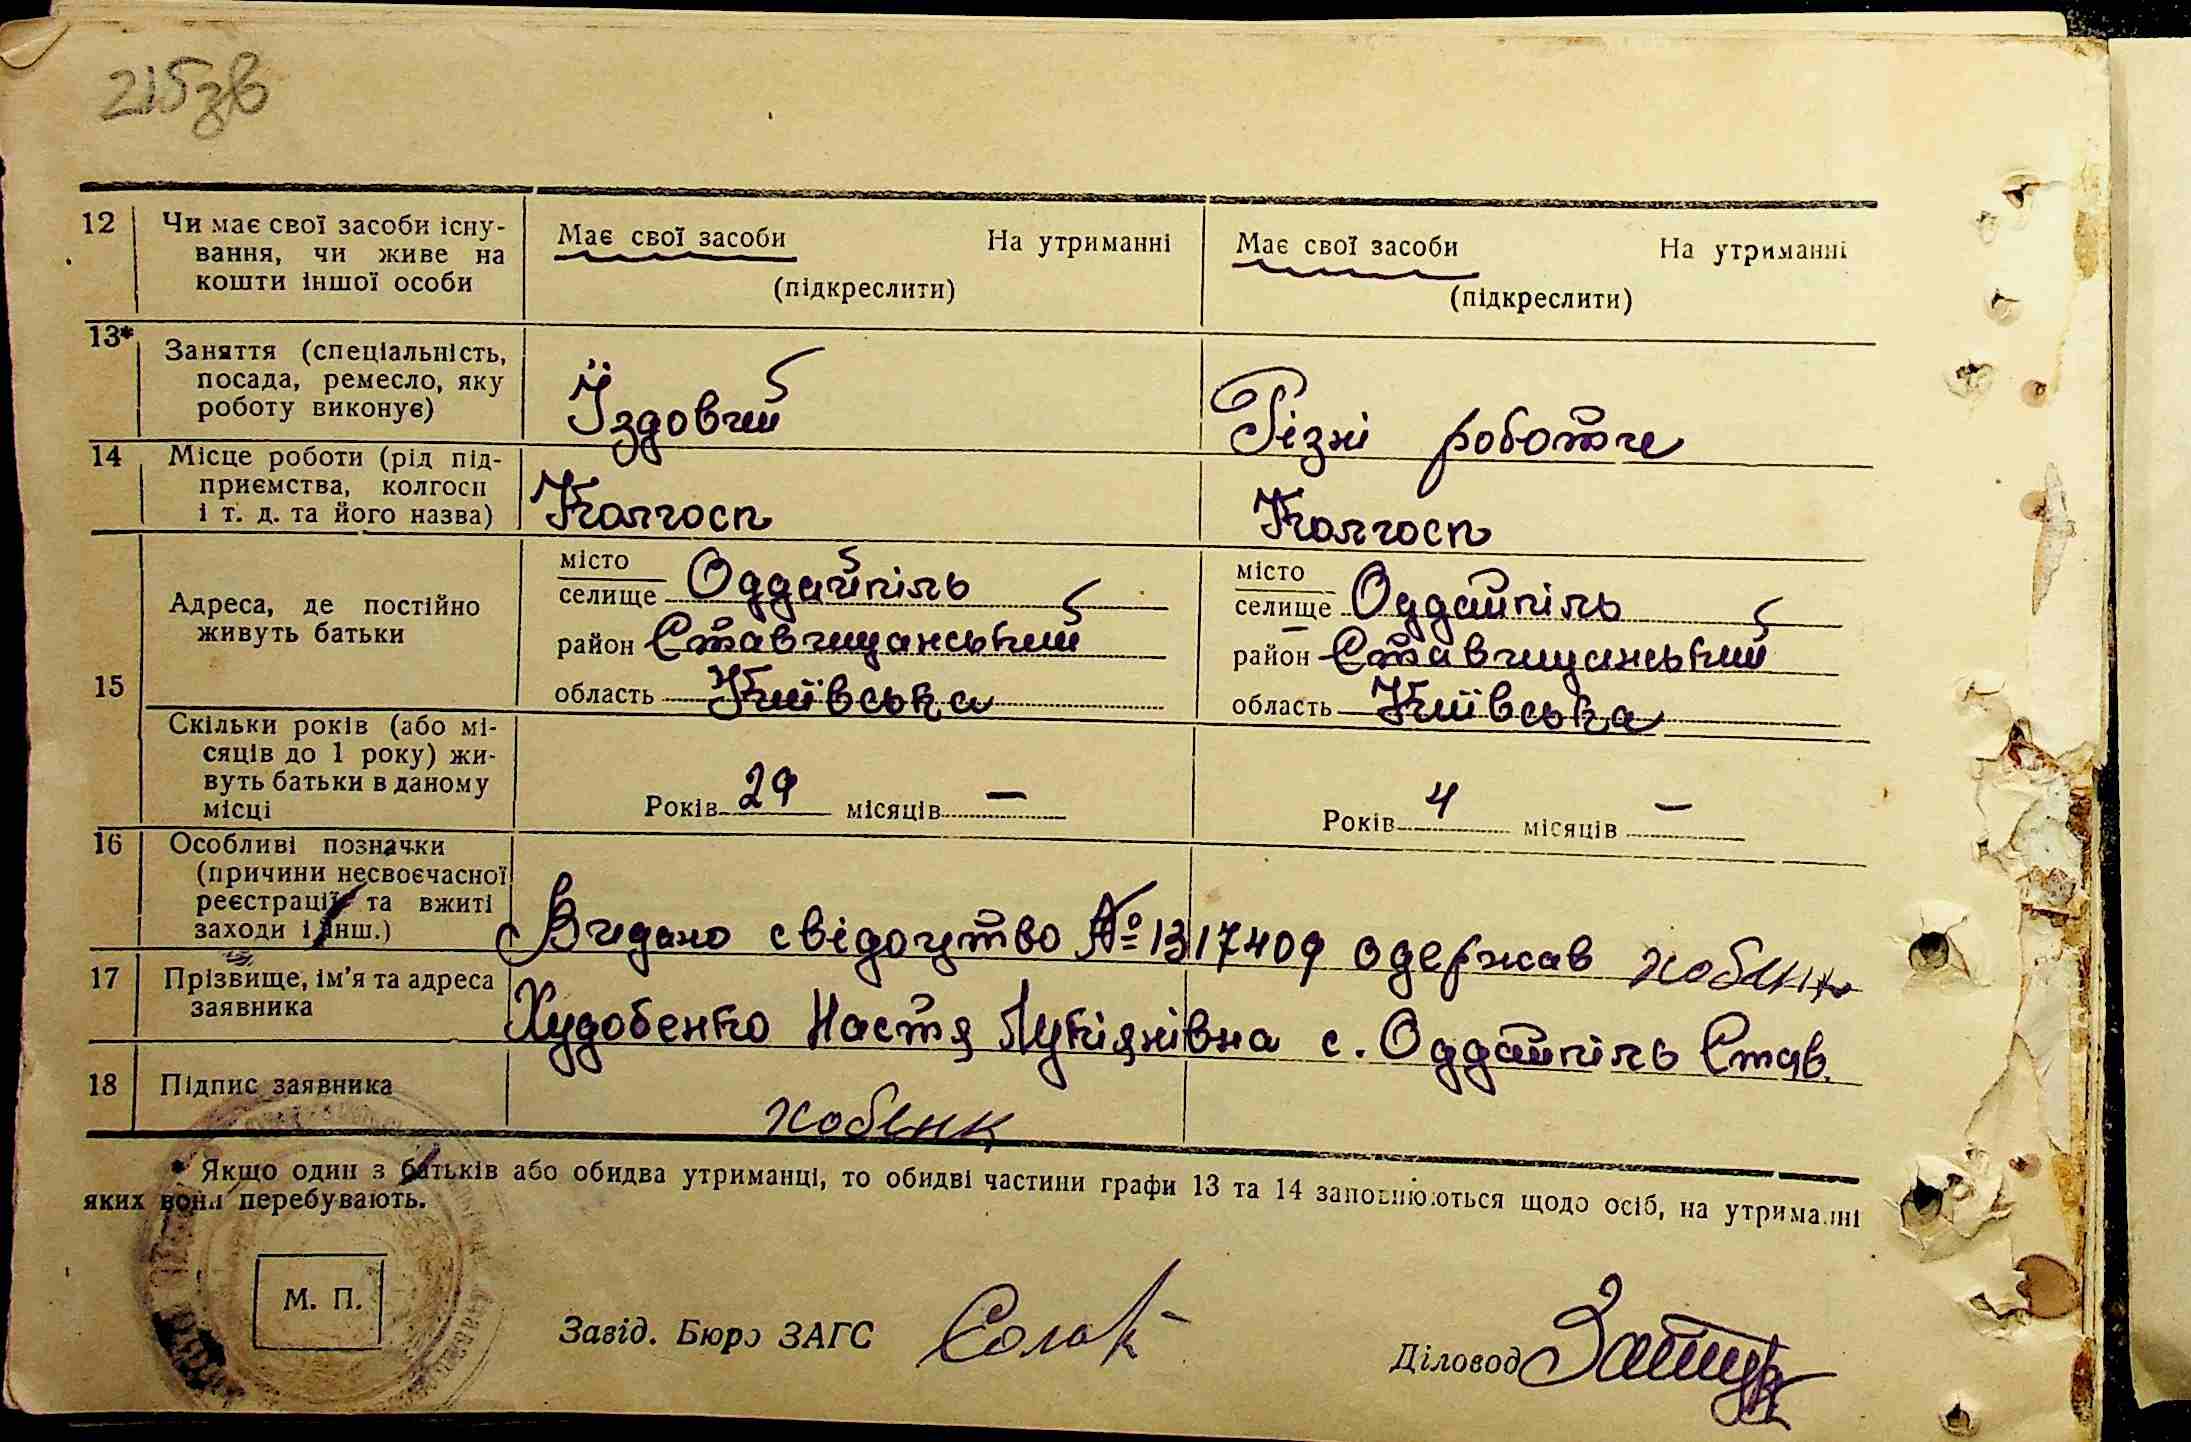 215зв
12 Чи має свої засоби існу-
вання, чи живе на
кошти іншої особи
Має свої засоби На утриманні
(підкреслити)
Має свої засоби На утриманні
(підкреслити)
13* Заняття (спеціальність,
посада, ремесло, яку
роботу виконує)
Їздовий
Різні роботи
14 Місце роботи (рід під-
приємства, колгосп
і т. д. та його назва)
Колгосп
Колгосп
15 Адреса, де постійно
живуть батьки
місто
селище Оддайпіль
район Ставищанський
область Київська
місто
селище Оддайпіль
район Ставищанський
область Київська
Скільки років (або мі-
сяців до 1 року) жи-
вуть батьки в даному
місці
Років 29 місяців —
Років 4 місяців —
16 Особливі позначки
(причини несвоєчасної
реєстрації та вжиті
заходи і інш.)
Видано свідоцтво № 1317409 одержав
17 Прізвище, ім'я та адреса
заявника
Худобенко Настя Лукіянівна с. Оддайпіль Став.
18 Підпис заявника
* Якщо один з батьків або обидва утриманці, то обидві частини графи 13 та 14 заповнюються щодо осіб, на утриманні
яких вони перебувають.
М. П.
Завід. Бюро ЗАГС
Діловод